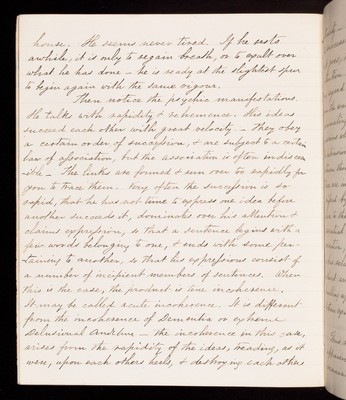 house. He seems never tired. If he rests
awhile, it is only to regain breath, or to exult over
what he has done – he is ready at the slightest spur
to begin again with the same vigour.
Then notice the psychic manifestations.
He talks with rapidity & vehemence. His ideas
succeed each other with great velocity – They obey
a certain order of succession, & are subject to a certain
law of association, but the association is often indiscern
-ible – The links are formed & run over too rapidly for
you to trace them. Very often the succession is so
rapid, that he has not time to express one idea before
another succeeds it, dominates over his attention &
claims expression, so that a sentence begins with a
few words belonging to one, & ends with some per-
taining to another, so that his expressions consist of
a number of incipient members of sentences. When
this is the case, the product is true incoherence.
It may be called acute incoherence. It is different
from the incoherence of Dementia or extreme
Delusional – the incoherence in this case,
arises from the rapidity of the ideas, treading, as it
were, upon each others heels, & destroying each others